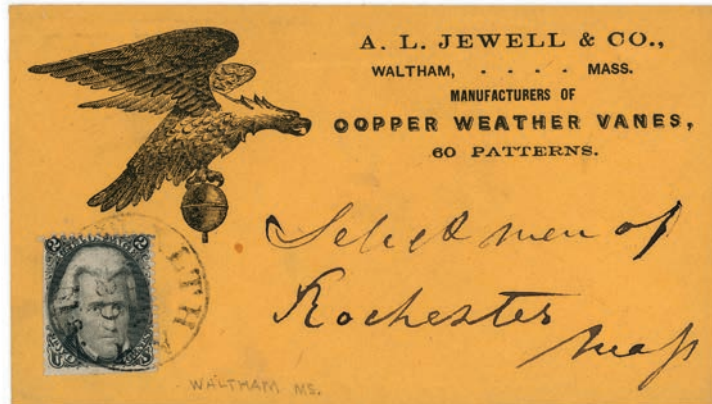 A. L. JEWELL & CO.,
WALTHAM, . . . . MASS.
MANUFACTURERS OF
COPPER WEATHER VANES,
60 PATTERNS.
Select men of
Rochester
Mass
2 2
WALTHA
WALTHAM MS.